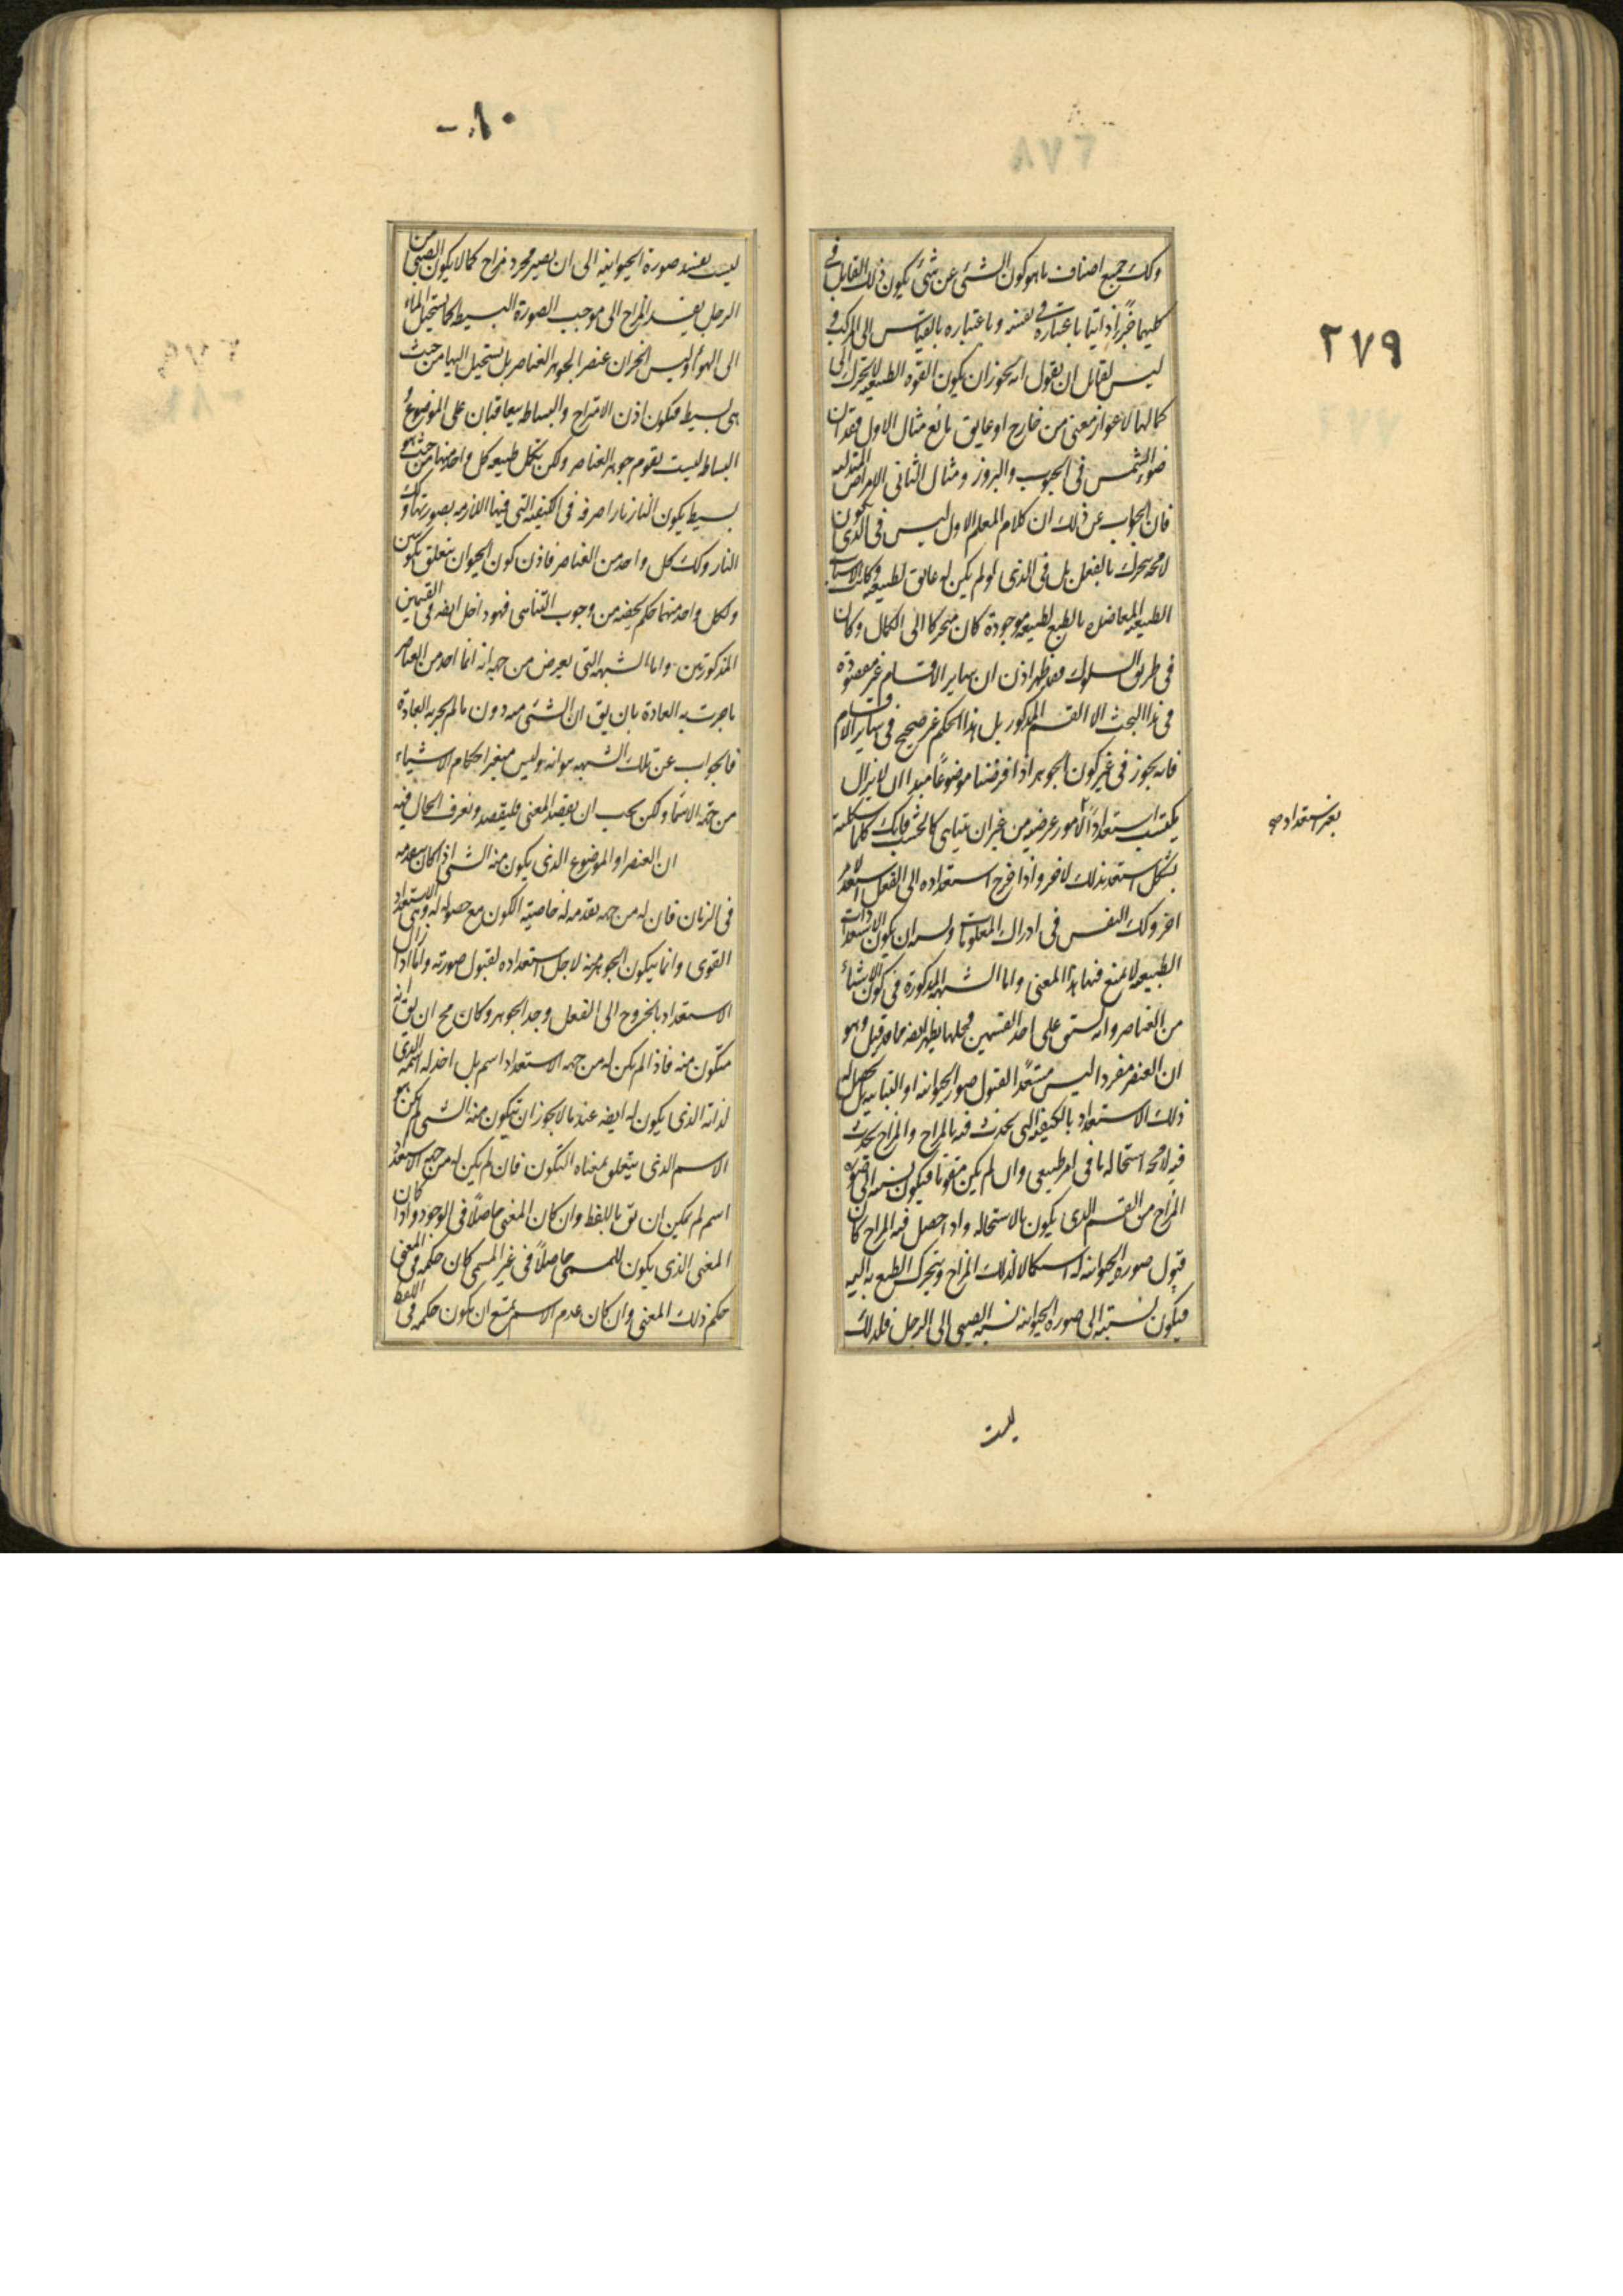 ٢٧٩
وكك جميع اصناف ما هو كون الشئ عن شئ يكون ذلك القابل فى
كليهما جزءاً ذاتيا باعتباره فى نفسه وباعتباره بالقياس الى المركب و
ليس لقائل ان يقول انه يجوز ان يكون القوه الطبيعيه لا تتحرك الى
كمالها لاعواز معنى من خارج او عايق مانع مثال الاول فقدان
ضوء الشمس فى الحبوب والبزور ومثال الثانى الامراض المذبله
فان الجواب عن ذلك ان كلام المعلم الاول ليس فى الذى يكون
لا محه يتحرك بالفعل بل فى الذى لو لم يكن له عايق لطبيعه وكانت الاسباب
الطبيعيه المعاضده بالطبع لطبيعه موجودة كان متحركا الى الكمال وكان
فى طريق السلوك فقد ظهر اذن ان ساير الاقسام غير مقصودة
فى هذا البحث الا القسم المذكور بل هذا الحكم غير صحيح فى ساير الاقسام
فانه يجوز فى غير كون الجوهر اذا فرضنا موضوعاً مبدا ان لا يزال
يكتسب استعدادا لامور عرضيه من غير ان تتناهى كالخشب فانك كلما شكلته
بشكل استعد بذلك لاخر واذا خرج استعداده الى الفعل استعد لامر
اخر وكك النفس فى ادراك المعلومات ويشبه ان يكون الاستعدادات
الطبيعيه لا يمنع فيها هذا المعنى واما الشبهه المذكورة فى كون الاشياء
من العناصر وانه ليس على احد القسمين فحلها يظهر ايضه مما قد قيل وهو
ان العنصر مفردا ليس مستعدا لقبول صور الحيوانيه او النباتيه بل يحصل له
ذلك الاستعداد بالكيفيه التى تحدث فيه بالمزاج والمزاج يحدث
فيه لا محه استحاله ما فى امر طبيعى وان لم يكن مقوما فيكون نسبته الى صوره
المزاج من القسم الذى يكون بالاستحاله واذا حصل فيه المزاج كان
قبول صوره الحيوانيه له استكمالا لذلك المزاج ويتحرك الطبع به اليه
فيكون نسبته الى صوره الحيوانيه نسبه الصبى الى الرجل فلذلك
ليست
ليست يفسد صورة الحيوانيه الى ان يصير مجرد مزاج كما لا يكون الصبى من
الرجل يفسد المزاج الى موجب الصورة البسيط كما يستحيل الماء
الى الهواء وليس الحيوان عنصر الجوهر العناصر بل يستحيل اليها من حيث
هى بسيط فيكون اذن الامتزاج والبساطه يتعاقبان على الموضوع و
البساطه ليست يقوم جوهر العناصر ولكن يكمل طبيعه كل واحد منها من حيث هو
بسيط يكون النار نارا صرفه فى الكيفيه التى فيها اللازمه بصورتها وكك
النار وكك كل واحد من العناصر فاذن كون الحيوان يتعلق بكونين
ولكل واحد منهما حكم يخصه من وجوب التناهى فهو داخل ايضه فى القسمين
المذكورتين واما الشبهه التى يعرض من جهه انه انما اخذ من العناصر
ما جرت به العادة بان يق ان الشئ منه دون ما لم يجر به العادة
فالجواب عن تلك الشبهه هو انه ليس يتغير احكام الاشياء
من جهة الاسماء ولكن يجب ان يقصد المعنى فليقصد وتعرف الحال فيه
ان العنصر او الموضوع الذى يكون منه الشئ اذا كان يتقدمه
فى الزمان فان له من جهه تقدمه له خاصية لا يكون مع حصوله له وهى الاستعداد
القوى وانما يكون الجوهر منه لاجل استعداده لقبول صورته واما اذا زال
الاستعداد بالخروج الى الفعل وجد الجوهر وكان مح ان يق انه
متكون منه فاذا لم يكن له من جهه الاستعداد اسم بل اخذ له اسمه الذى
لذاته الذى يكون له ايضه عند ما لا يجوز ان يتكون منه الشئ لم يكن هو
الاسم الذى يتعلق بمعناه التكون فان لم يكن له من جهه الاستعداد
اسم لم يمكن ان يق باللفظ وان كان المعنى حاصلاً فى الوجود واذا كان
المعنى الذى يكون للمسمى حاصلاً فى غير المسمى كان حكمه فى المعنى
حكم ذلك المعنى وان كان عدم الاسم يمنع ان يكون حكمه فى اللفظ